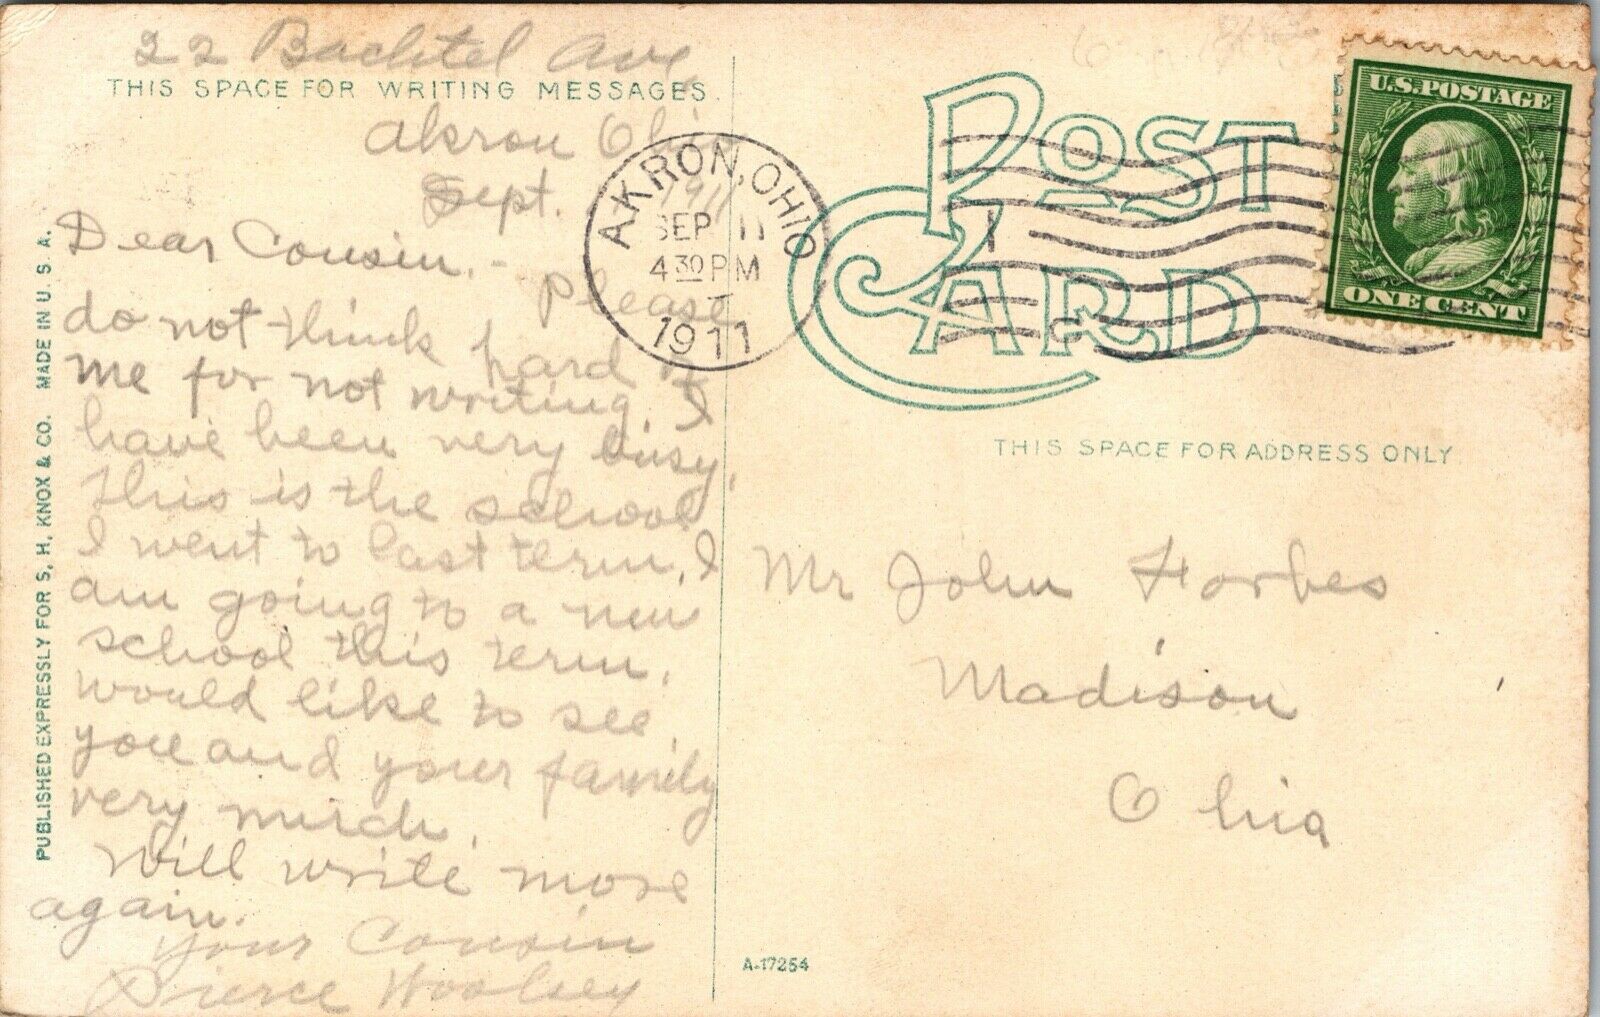 22 Bachtel Ave,
THIS SPACE FOR WRITING MESSAGES.
Akron Ohio
Sept. 1911
Dear Cousin. - Please
do not think hard of
me for not writing. I
have been very busy.
this is the school
I went to last term. I
am going to a new
school this term.
would like to see
you and your family
very much.
Will write more
again.
Your Cousin
Pierce Woolsey
PUBLISHED EXPRESSLY FOR S. H. KNOX & CO. MADE IN U. S. A.
AKRON, OHIO
SEP 11
4 30 PM
1911
POST CARD
U.S. POSTAGE
ONE CENT
THIS SPACE FOR ADDRESS ONLY
Mr John Forbes
Madison
Ohio
A-17254